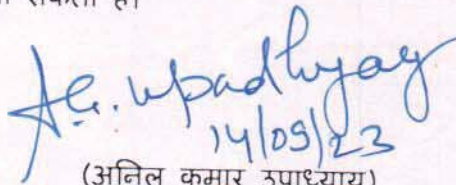 सकता है।
A.K. Upadhyay
14/09/23
(अनिल कुमार उपाध्याय)